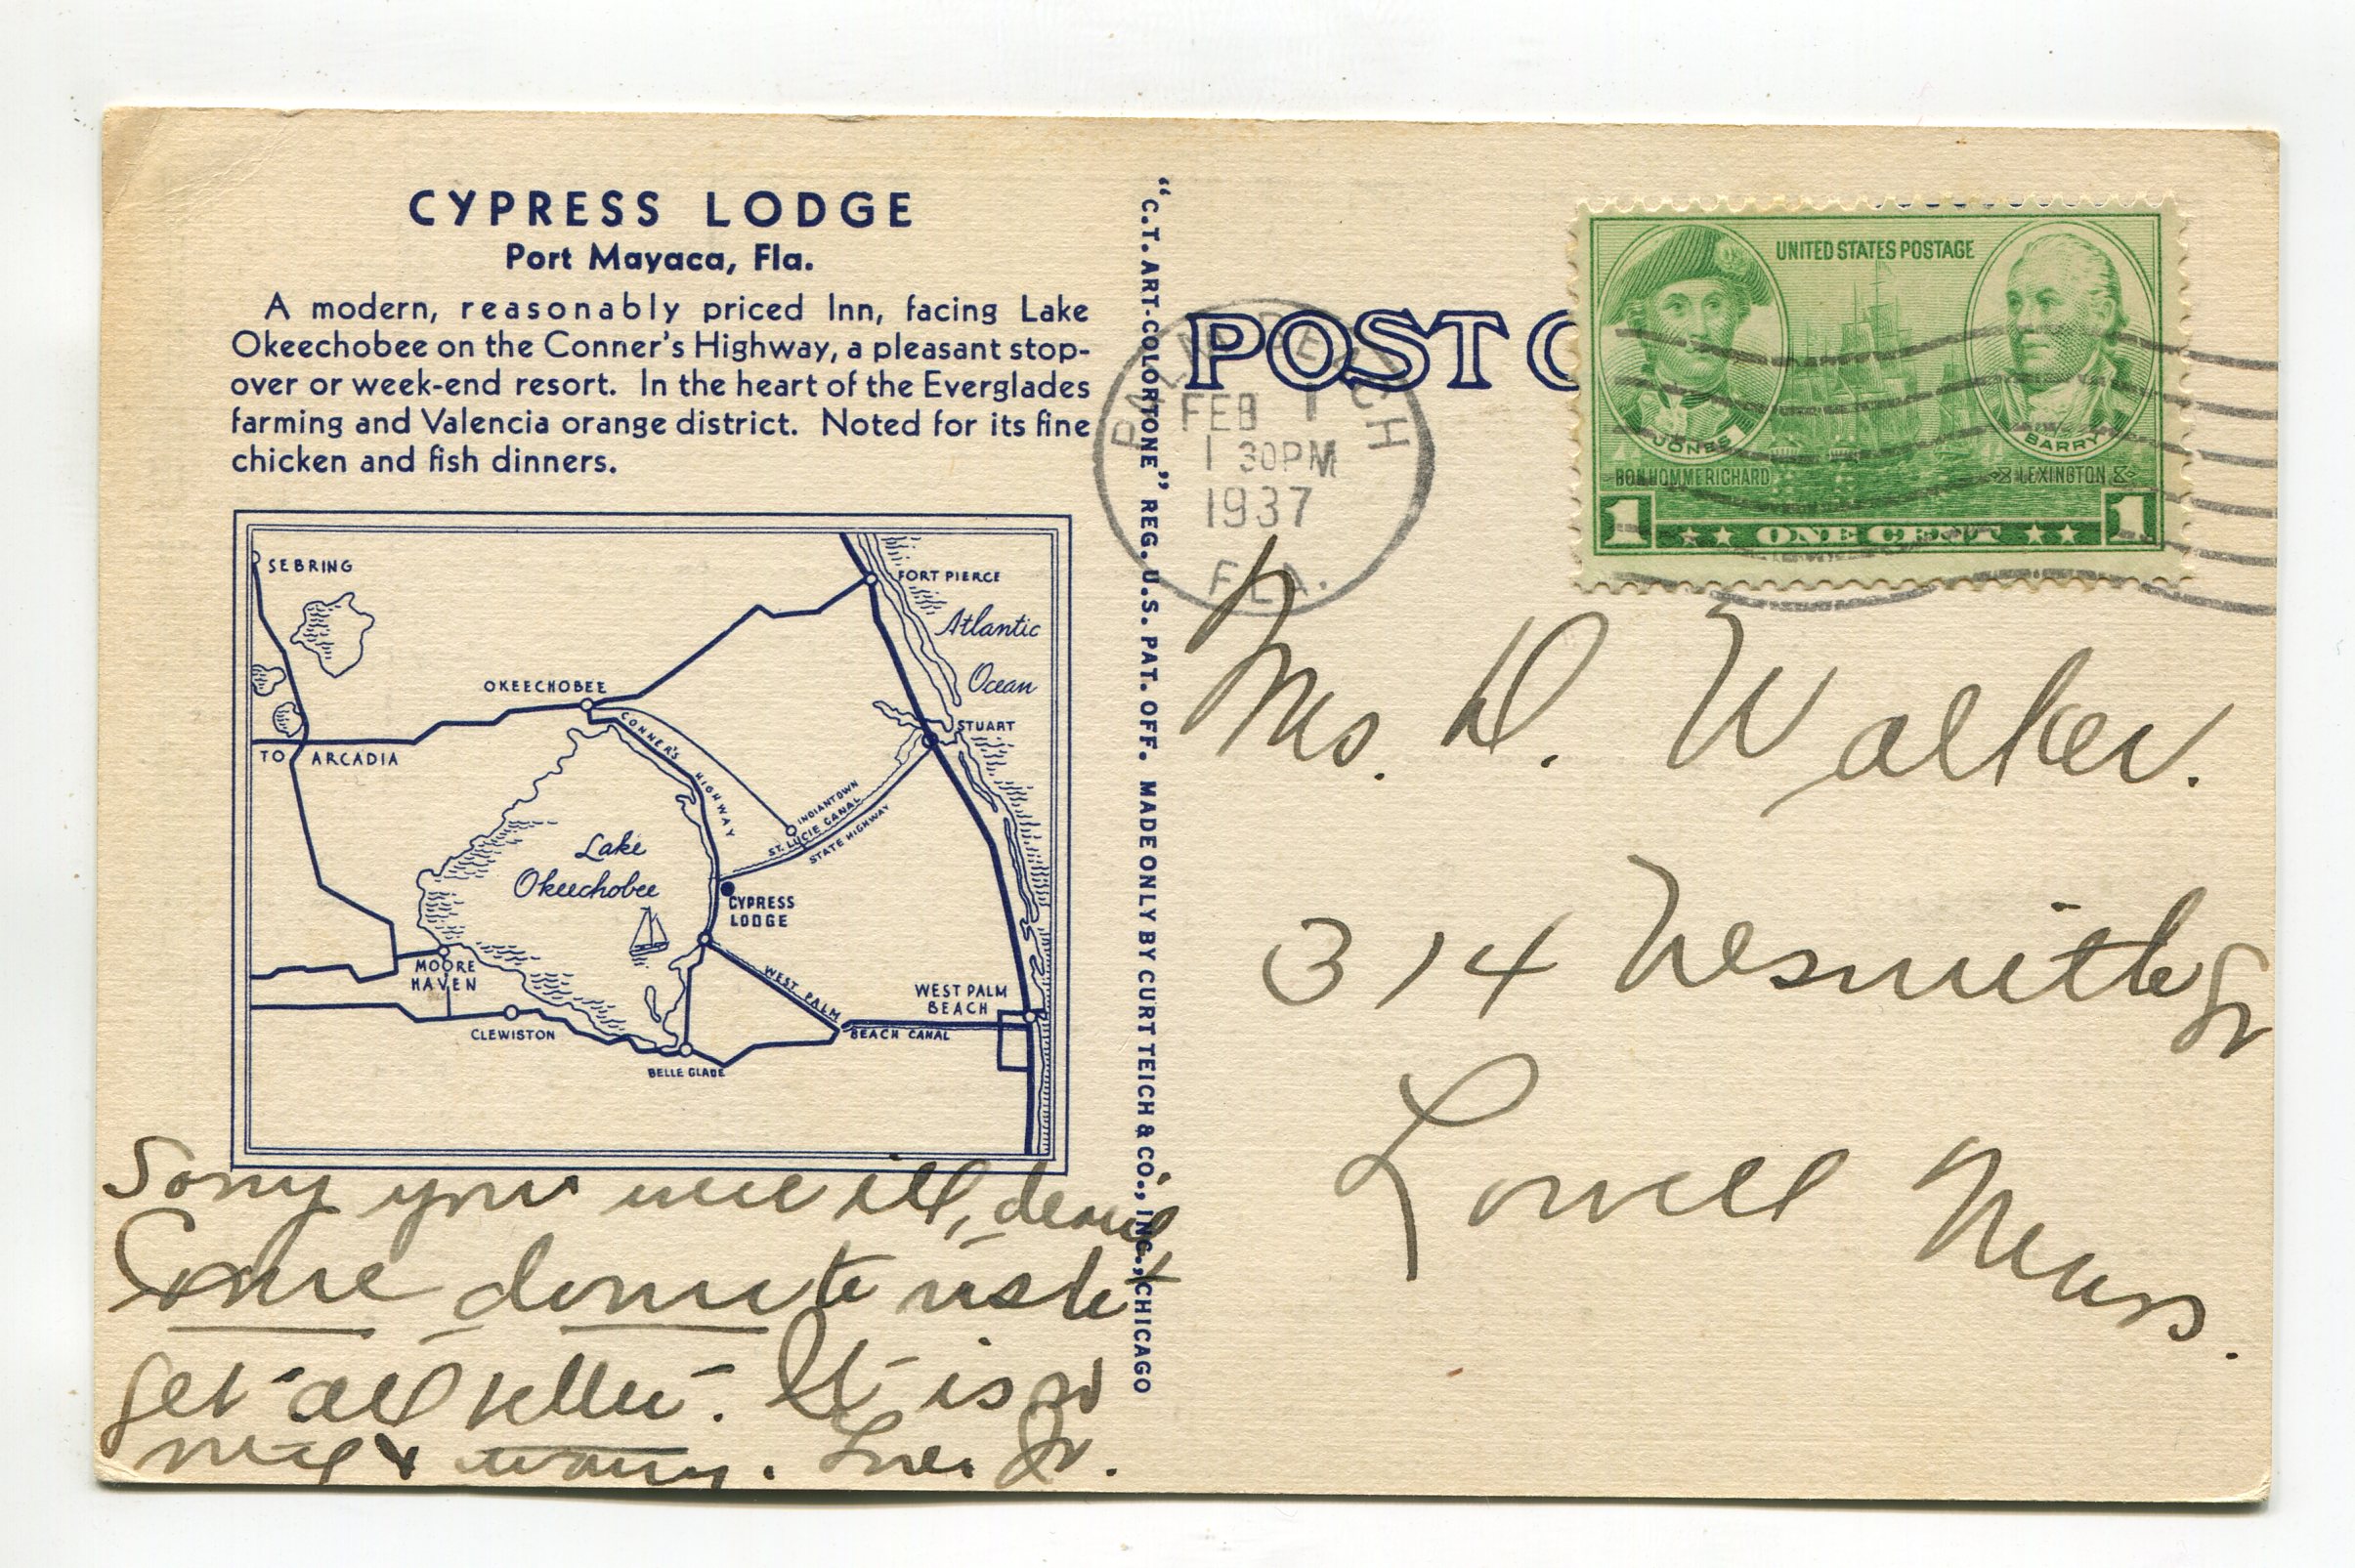 CYPRESS LODGE
Port Mayaca, Fla.
A modern, reasonably priced Inn, facing Lake
Okeechobee on the Conner's Highway, a pleasant stop-
over or week-end resort. In the heart of the Everglades
farming and Valencia orange district. Noted for its fine
chicken and fish dinners.
SEBRING
FORT PIERCE
Atlantic
Ocean
OKEECHOBEE
STUART
TO ARCADIA
CONNER'S HIGHWAY
INDIANTOWN
ST. LUCIE CANAL
STATE HIGHWAY
Lake
Okeechobee
CYPRESS
LODGE
MOORE
HAVEN
WEST PALM
BEACH CANAL
WEST PALM
BEACH
CLEWISTON
BELLE GLADE
Sorry you were ill, dear
Come down to
get all better. It is
nice & warm. Love.
"C.T. ART-COLORTONE" REG. U.S. PAT. OFF. MADE ONLY BY CURT TEICH & CO., INC., CHICAGO
POST C
PALM BEACH
FEB 1
1 30PM
1937
FLA.
UNITED STATES POSTAGE
JONES
BARRY
BONHOMME RICHARD
LEXINGTON
1 ONE CENT 1
Mrs. D. Walker.
314
Lowell Mass.